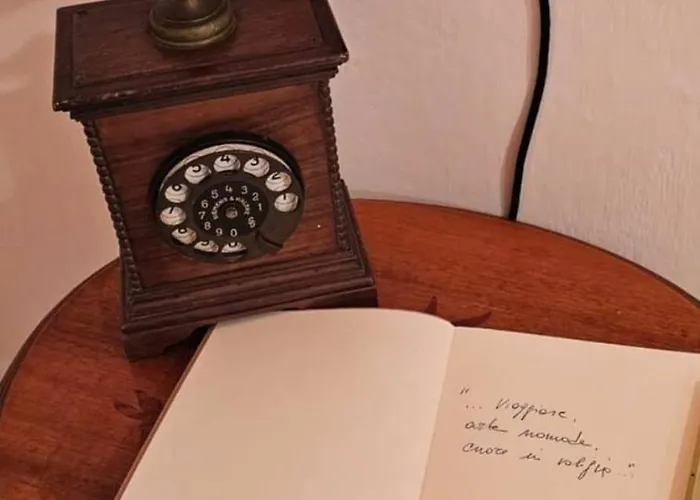 5 4 3
6 2
7 1
8
9 0
SIEMENS & HALSKE
"... Viaggiare,
arte nomade,
cuore in valigia..."